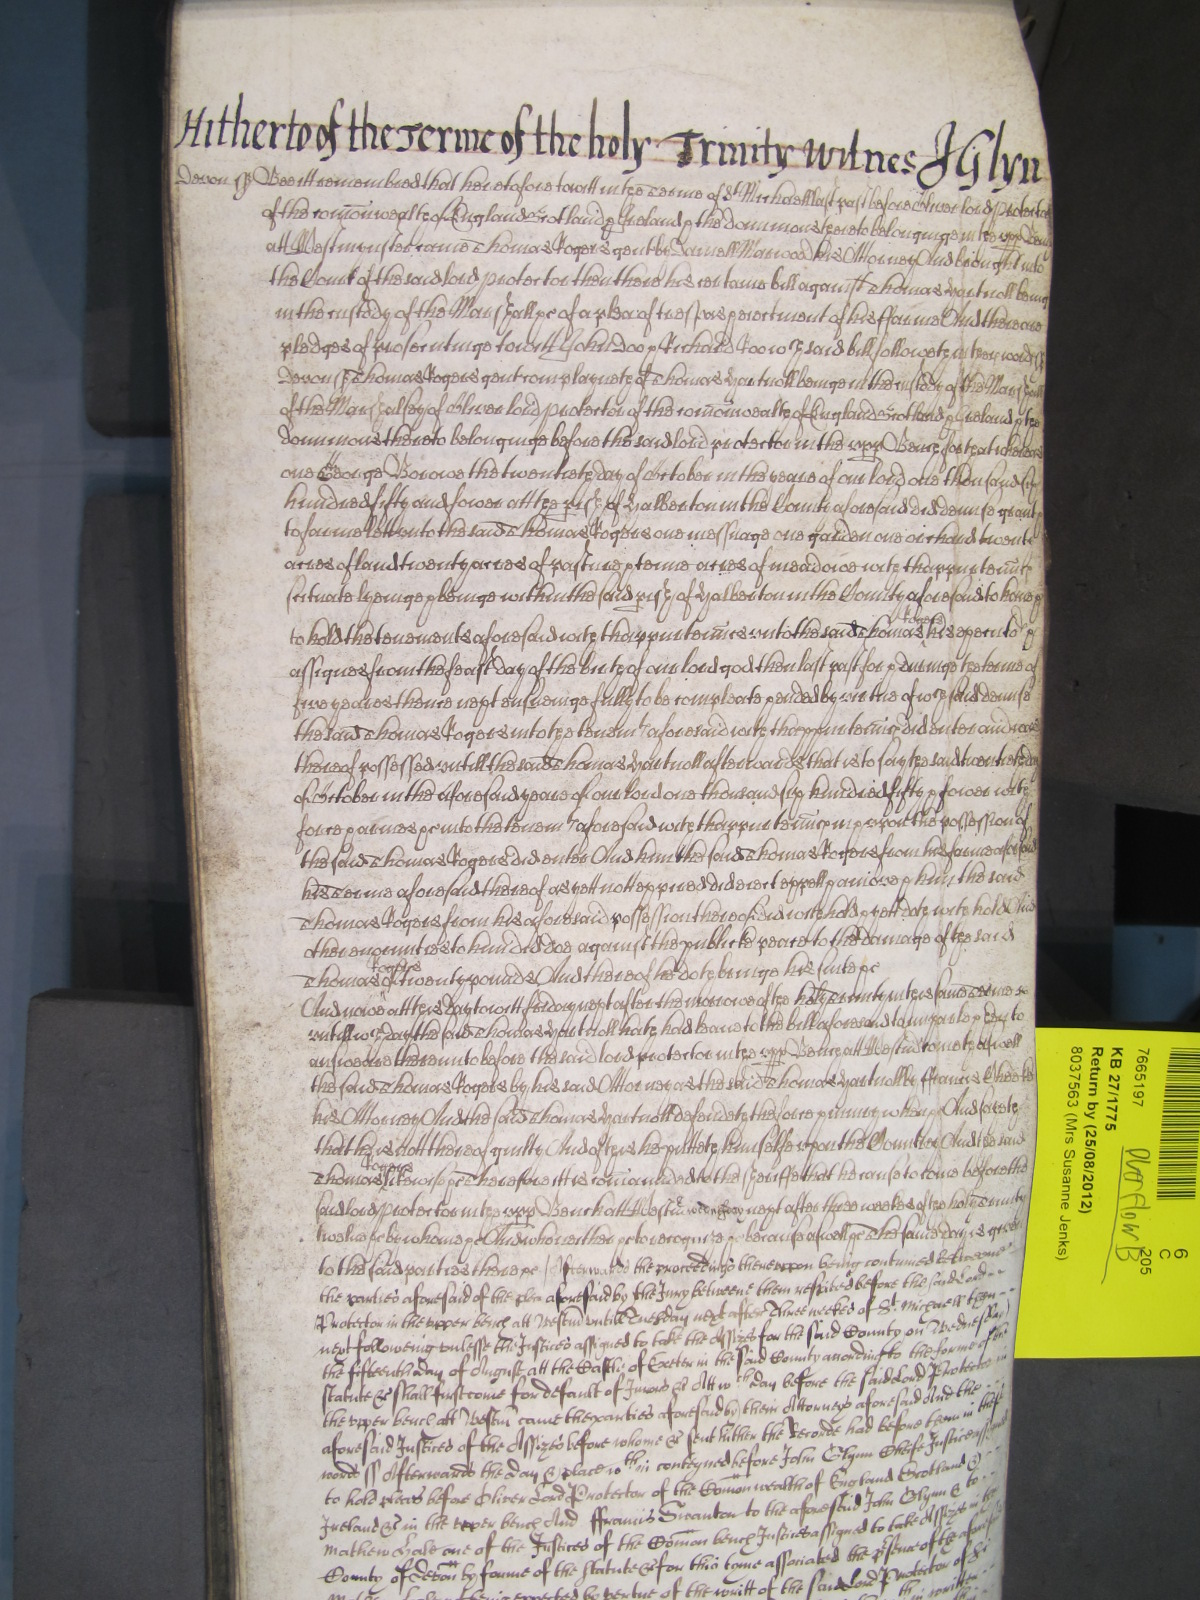 Hitherto of the Terme of the holy Trinity Witnes J Glyn
Devon ss Bee itt remembred that heretofore towitt in the Terme of St Michaell last past before Oliver lord protector
of the comonwealth of England Scotland & Ireland & the dominions thereto belonginge in the upp Bench
att Westminster came Thomas Rogers gent by Marwood his Attorney And brought into
the Court of the said lord protector then there his certaine bill against Thomas Hartnoll beinge
in the custody of the Marshall &c of a plea of trespas & eiectment of his ffarme And there are
pledges of prosecutinge towitt John Doo & Richard Roo wch said bill followeth in these words ss
Devon ss Thomas Rogers gent complayneth of Thomas Hartnoll beinge in the custody of the Marshall
of the Marshalsey of Oliver lord protector of the comonwealth of England Scotland & Ireland & the
dominions thereto belonginge before the said lord protector in the upp Bench for that whereas
one George Borowe the twentieth day of October in the yeare of our lord one thousand six
hundred fifty and fower att the prish of Halberton in the County aforesaid did demise graunt &
to farme lett unto the said Thomas Rogers one messuage one garden one orchard twenty
acres of land twenty acres of pasture & tenne acres of meadowe with thappurtenncs
scituate lyeinge & beinge within the said prish of Halberton in the County aforesaid to have &
to hold the tenements aforesaid with thappurtenncs unto the said Thomas Rogers his executors &
assignes from the feast day of the birth of our lord god then last past for & duringe the terme of
five yeares thence next ensueinge fully to be compleate & ended by vertue of wch said demise
the said Thomas Rogers into the tenemts aforesaid with thappurtenncs did enter and was
thereof possessed untill the said Thomas Hartnoll afterwards that is to say the said twentieth day
of October in the aforesaid yeare of our lord one thousand six hundred fifty & fower with
force & armes &c into the tenemts aforesaid with thappurtenncs in & upon the possession of
the said Thomas Rogers did enter And him the said Thomas Rogers from his farme aforesaid
his terme aforesaid thereof as yett not expired did eiect expell & amove & him the said
Thomas Rogers from his aforesaid possession thereof did withhold & yett doth withhold And
other enormities to him did doe against the publicke peace to the damage of the said
Thomas Rogers of twenty pounds And thereof he doth bringe his suite &c
And nowe att this day towitt friday next after the morrowe of the holy Trinity in this same Terme
untill wch day the said Thomas Hartnoll hath had leave to the bill aforesaid to imparle & then to
answeare thereunto before the said lord protector in the upp Bench att Westm cometh aswell
the said Thomas Rogers by his said Attorney as the said Thomas Hartnoll by ffrancis
his Attorney And the said Thomas Hartnoll defendeth the force & iniury when &c And saieth
that he is not thereof guilty And of this he putteth himselfe upon the Country And the said
Thomas Rogers likewise &c Therefore itt is comanded to the Sheriffe that he cause to come before the
said lord protector in the upp Bench att Westm wensday next after three weekes of the holy Trinity
twelve &c by whome &c And who neither &c to recognize &c because aswell &c The same day is given
to the said parties there &c Afterwards the proceedings thereuppon being continued betweene
the parties aforesaid of the plea aforesaid by the Jury betweene them respited before the said Lord
Protector in the upper bench att Westm untill Tuesday next after Three weekes of St Michaell then
next followeing unlesse the Justices assigned to take the Assizes for the said County on Wednesday
the fifteenth day of August att the Castle of Exeter in the said County according to the forme of the
statute &c shall first come for default of Jurors &c Att wch day before the said Lord Protector in
the upper bench att Westm came the parties aforesaid by their Attorneys aforesaid And the
aforesaid Justices of the Assizes before whome &c sent hither the Recorde had before them in these
words ss Afterwards the day & place within conteyned before John Glynn Cheife Justice assigned
to hold pleas before Oliver Lord Protector of the Comonwealth of England Scotland &
Ireland &c in the upper bench And ffrancis Swanton to the aforesaid John Glynn & to
Mathew Hale one of the Justices of the Comon bench Justices assigned to take Assizes in the
County of Devon by forme of the Statute &c for this tyme associated the presence of the aforesaid
by vertue of the writt of the said Lord Protector of
7665197
KB 27/1775
Return by (25/08/2012)
8037563 (Mrs Susanne Jenks)
Overflow B
6
C
205